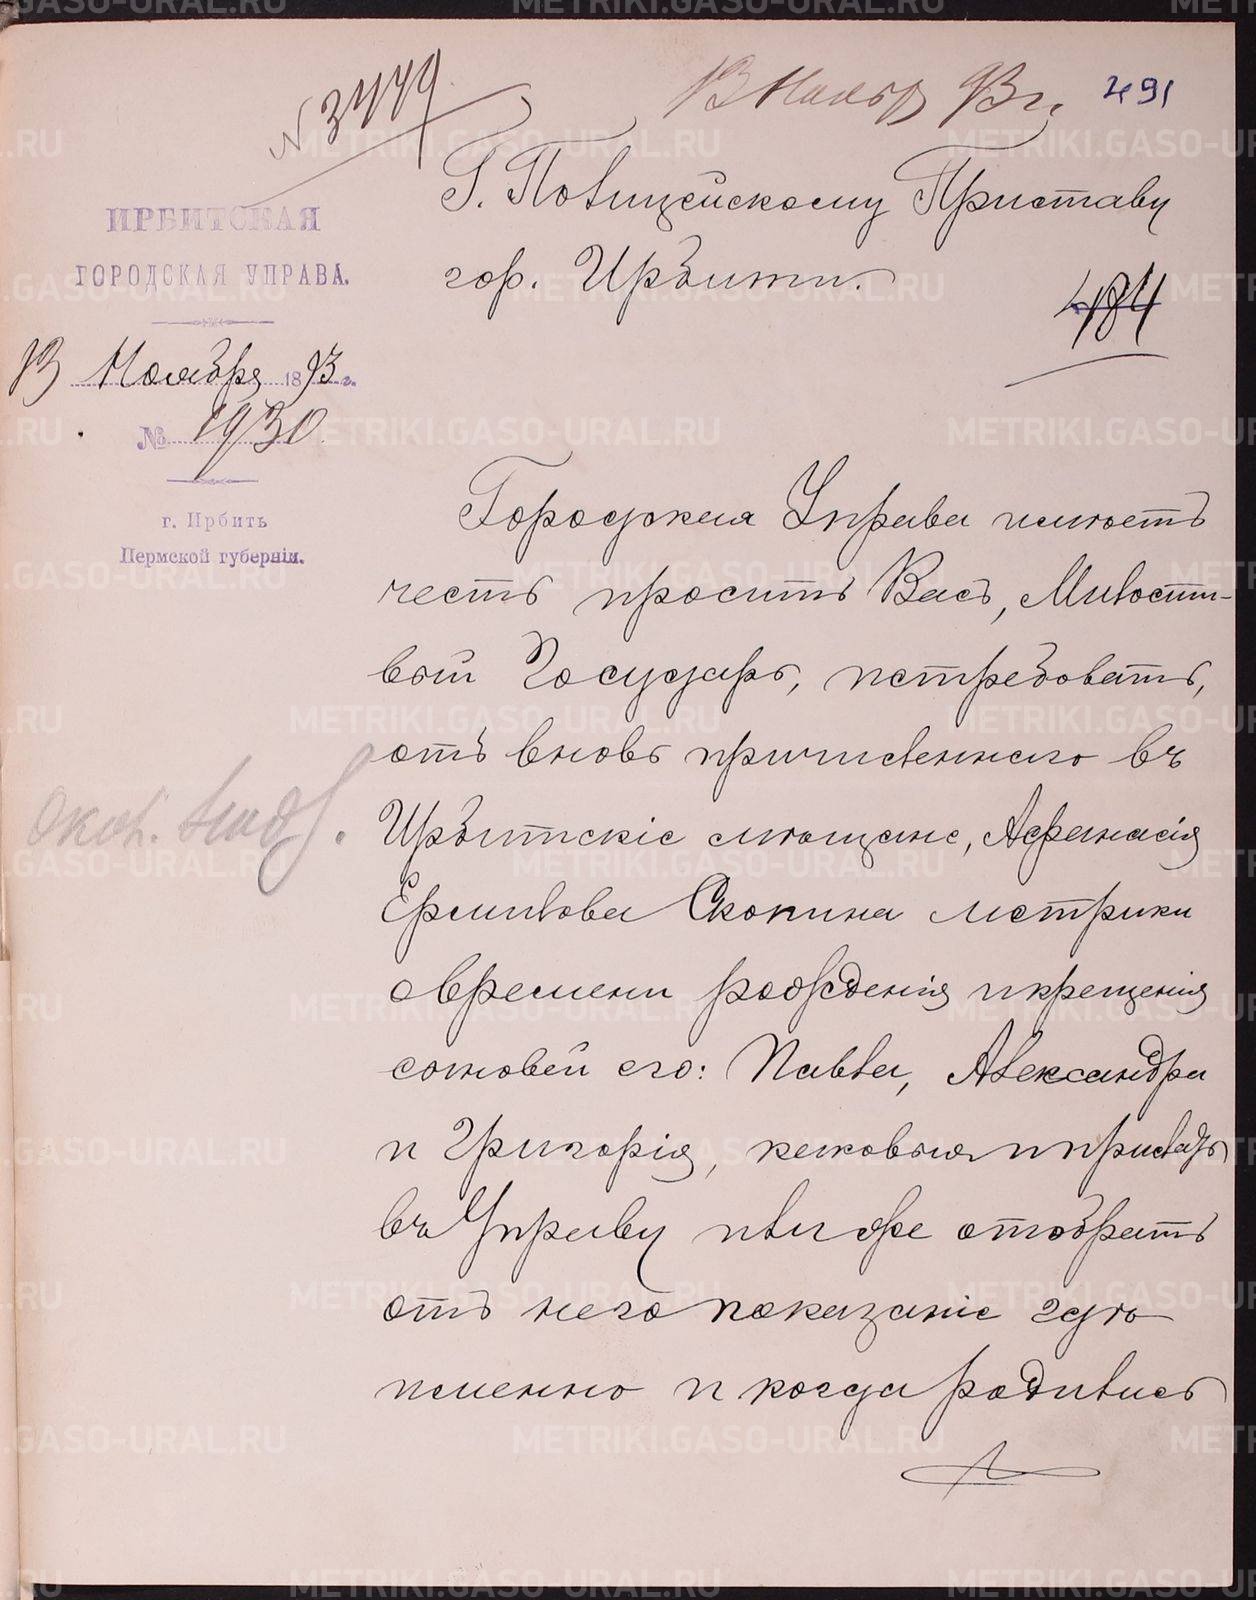 № 3449
13 Ноября 93 г.
491
ИРБИТСКАЯ
ГОРОДСКАЯ УПРАВА.
13 Ноября 1893 г.
№ 1930
г. Ирбить
Пермской губерніи.
Г. Полицейскому Приставу
гор. Ирбити.
484
Городская Управа имѣетъ
честь просить Васъ, Милости-
вый Государь, истребовать,
отъ вновь причисленнаго въ
Ирбитскіе мѣщане, Афанасія
Ермилова Скопина метрики
о времени рожденія и крещенія
сыновей его: Павла, Александра
и Григорія, каковыя и прислать
въ Управу или же отобрать
отъ него показаніе гдѣ
именно и когда родились